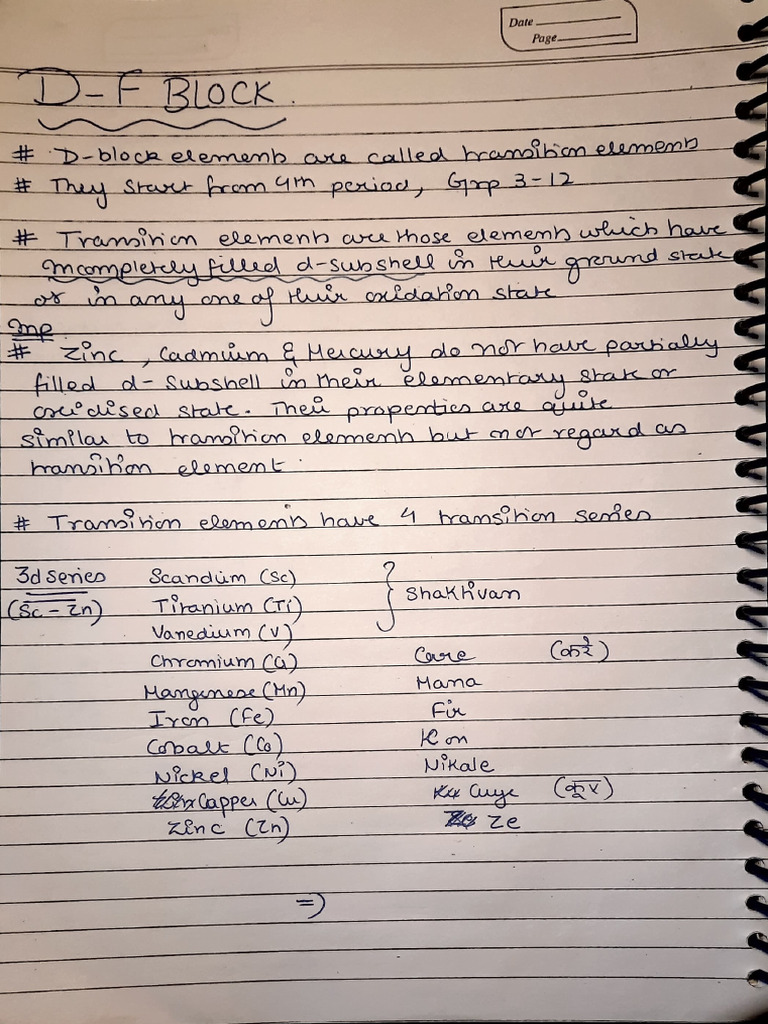 Date
Page
D-F BLOCK.
# D-block elements are called transition elements
# They start from 4th period, Grp 3-12
# Transition elements are those elements which have
incompletely filled d-subshell in their ground state
or in any one of their oxidation state
Imp
# Zinc, Cadmium & Mercury do not have partially
filled d-subshell in their elementary state or
oxidised state. Their properties are quite
similar to transition elements but not regard as
transition element.
# Transition elements have 4 transition series
3d series Scandium (Sc) } Shaktivan
(Sc-Zn) Titanium (Ti)
Vanedium (V)
Chromium (Cr) Care (करे)
Manganese (Mn) Mana
Iron (Fe) Fir
Cobalt (Co) Kon
Nickel (Ni) Nikale
Copper (Cu)
Zinc (Zn) Ze
=)